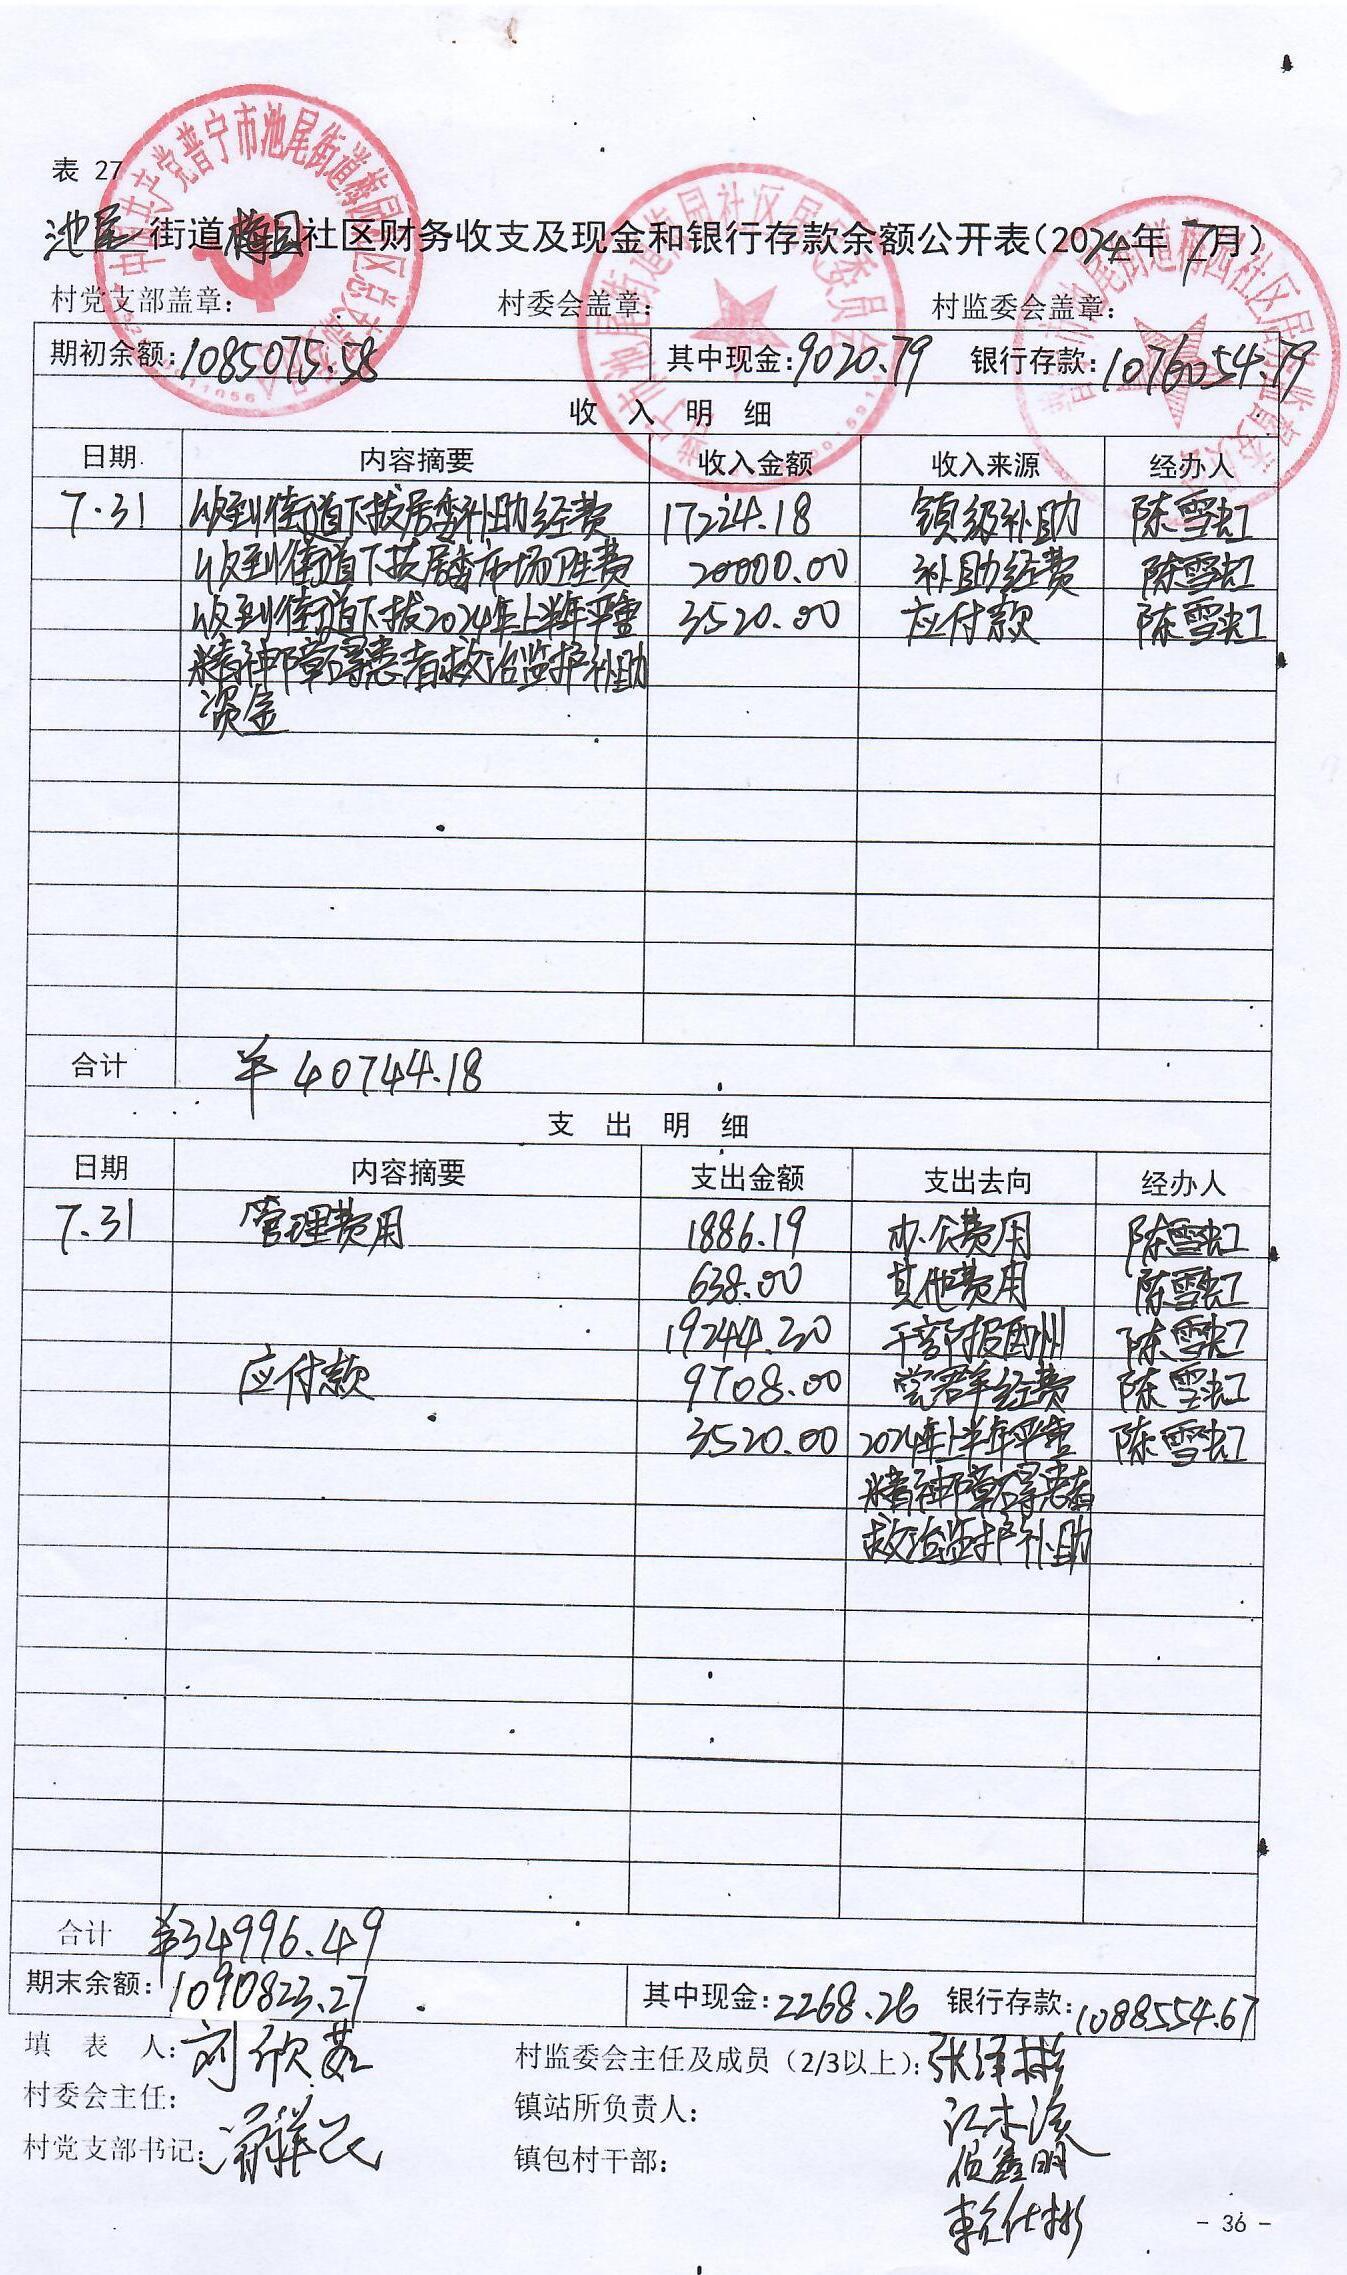 表 27
池尾街道梅园社区财务收支及现金和银行存款余额公开表(2024年7月)
村党支部盖章: 村委会盖章: 村监委会盖章:
期初余额:1085075.58 其中现金:9020.79 银行存款:1076054.79
收入明细
日期 内容摘要 收入金额 收入来源 经办人
7.31 收到街道下拨居委补助经费 17224.18 镇级补助 陈雪虹
收到街道下拨居委市场卫生费 20000.00 补助经费 陈雪虹
收到街道下拨2024年上半年严重 3520.00 应付款 陈雪虹
精神障碍患者救治监护补助
资金
合计 ¥40744.18
支出明细
日期 内容摘要 支出金额 支出去向 经办人
7.31 管理费用 1886.19 办公费用 陈雪虹
638.00 其他费用 陈雪虹
19244.30 干部报酬 陈雪虹
应付款 9708.00 党群经费 陈雪虹
3520.00 2024年上半年严重 陈雪虹
精神障碍患者
救治监护补助
合计 ¥34996.49
期末余额:1090823.27 其中现金:2268.26 银行存款:1088554.67
填表人: 刘欣
村监委会主任及成员(2/3以上): 张泽彬
村委会主任: 镇站所负责人:
村党支部书记: 镇包村干部:
- 36 -